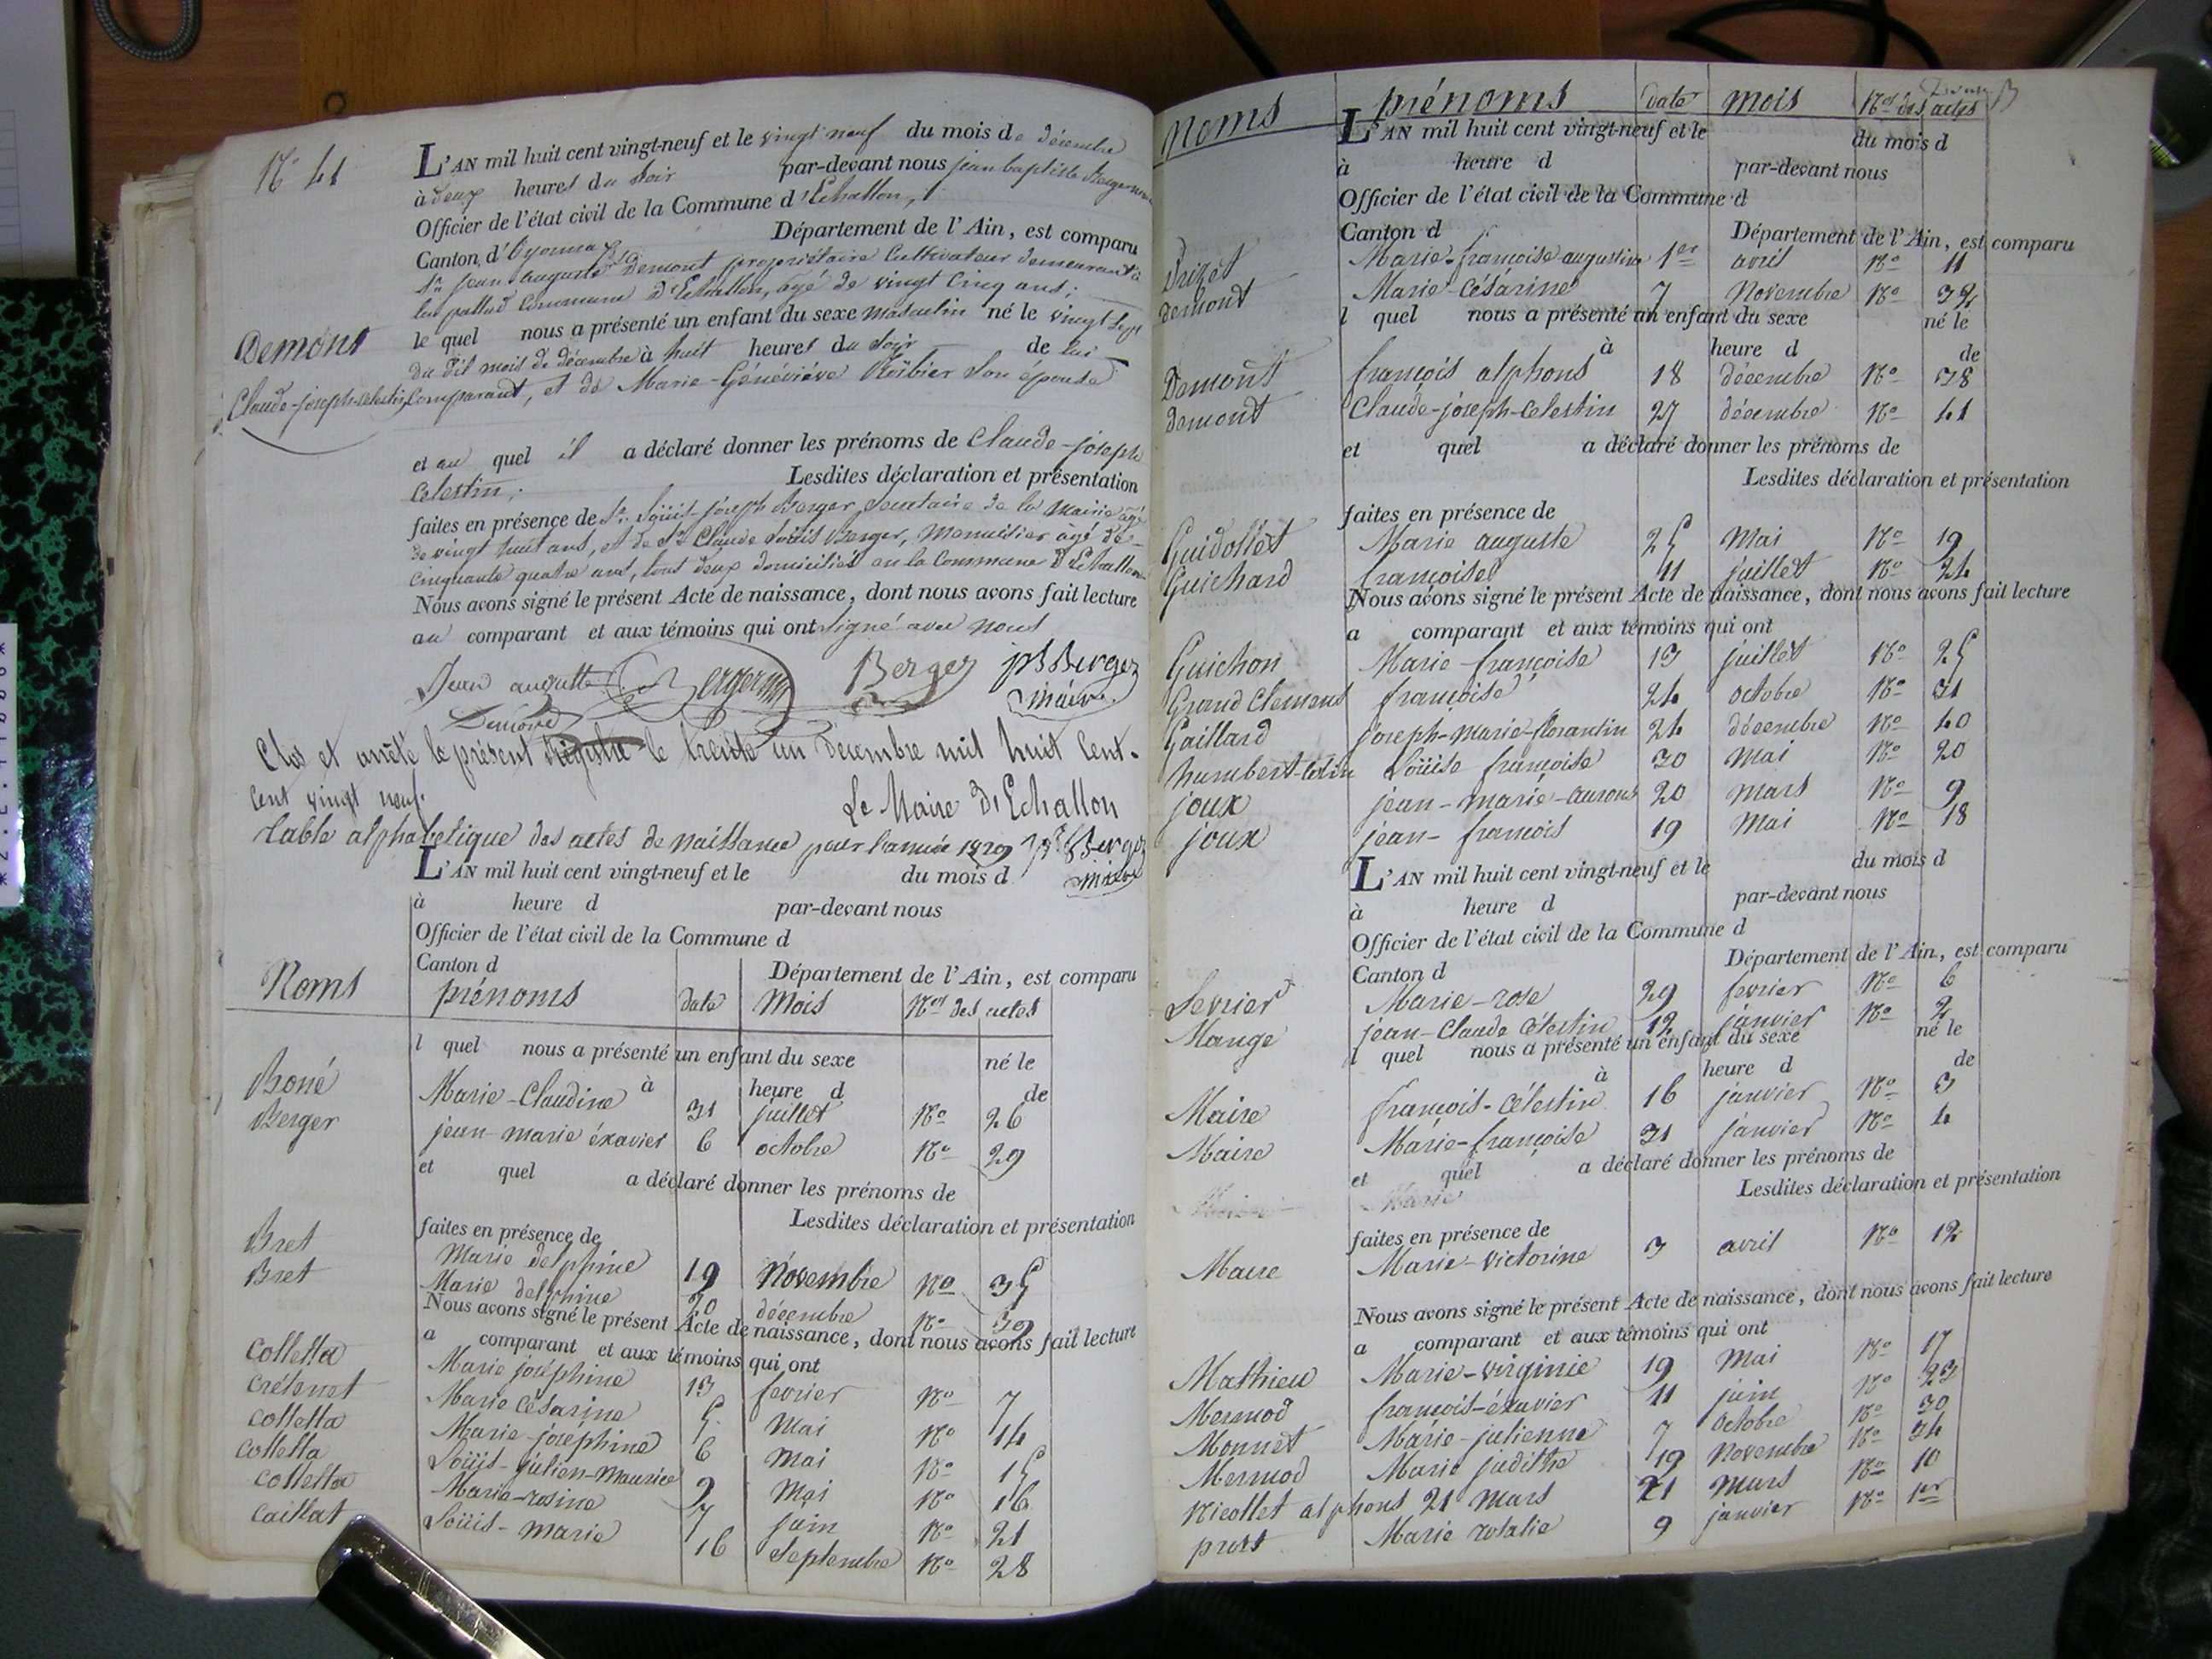 N° 41
L'AN mil huit cent vingt-neuf et le vingt neuf du mois de décembre
à deux heures du soir par-devant nous jean baptiste
Officier de l'état civil de la Commune d'Echallon,
Canton d'Oyonnax Département de l'Ain, est comparu
Sr jean auguste Demont propriétaire Cultivateur demeurant à
Commune d'Echallon, agé de vingt Cinq ans;
le quel nous a présenté un enfant du sexe masculin né le vingt sept
Demont
du dit mois de décembre à huit heures du soir de lui
Claude-joseph-celestin
Comparant, et de Marie-Généviève son épouse
et au quel il a déclaré donner les prénoms de Claude-joseph
Celestin; Lesdites déclaration et présentation
faites en présence de Sr Loüis joseph Berger Secretaire de la Mairie agé
de vingt huit ans, et de Sr Claude Loüis Berger, Menuisier agé de
cinquante quatre ans, tous deux domiciliés en la Commune d'Echallon
Nous avons signé le présent Acte de naissance, dont nous avons fait lecture
au comparant et aux témoins qui ont signé avec nous
Jean auguste Berger jB Berger
Demond maire
Clos et arrêté le présent Registre le trente un decembre mil huit Cent
Cent vingt neuf.
Le Maire d'Echallon
table alphabetique des actes de naissance pour l'année 1829 Berger
maire
L'AN mil huit cent vingt-neuf et le du mois d
à heure d par-devant nous
Officier de l'état civil de la Commune d
Canton d Département de l'Ain, est comparu
Noms prénoms date Mois Nos des actes
l quel nous a présenté un enfant du sexe né le
à heure d de
Boné Marie-Claudine 31 juillet N° 26
Berger jean-marie éxavier 6 octobre N° 29
et quel a déclaré donner les prénoms de
Lesdites déclaration et présentation
faites en présence de
Bret Marie delphine 19 Novembre N° 35
Bret Marie delphine 20 décembre N° 39
Nous avons signé le présent Acte de naissance, dont nous avons fait lecture
a comparant et aux témoins qui ont
Colletta Marie joséphine 13 fevrier N° 7
Crétenet Marie Césarine 5 Mai N° 14
Colletta Marie-joséphine 6 Mai N° 15
Colletta Loüis-julien-Maurice 9 Mai N° 16
Colletta Marie-rosine 7 juin N° 21
Caillat Loüis-marie 16 Septembre N° 28
Noms prénoms date mois Nos des actes
L'AN mil huit cent vingt-neuf et le du mois d
à heure d par-devant nous
Officier de l'état civil de la Commune d
Canton d Département de l'Ain, est comparu
Marie-françoise augustine 1er avril N° 11
Demont Marie-Césarine 7 Novembre N° 32
l quel nous a présenté un enfant du sexe né le
à heure d de
Demont françois alphons 18 décembre N° 38
demont Claude-joseph-Celestin 27 décembre N° 41
et quel a déclaré donner les prénoms de
Lesdites déclaration et présentation
faites en présence de
Guidollet Marie auguste 25 Mai N° 19
Guichard françoise 11 juillet N° 24
Nous avons signé le présent Acte de naissance, dont nous avons fait lecture
a comparant et aux témoins qui ont
Guichon Marie-françoise 13 juillet N° 25
Grand Clement françoise 24 octobre N° 31
Gaillard joseph-marie-florantin 24 décembre N° 40
humbert-Colin Loüise françoise 30 Mai N° 20
joux jean-marie- 20 Mars N° 9
joux jean-françois 19 Mai N° 18
L'AN mil huit cent vingt-neuf et le du mois d
à heure d par-devant nous
Officier de l'état civil de la Commune d
Canton d Département de l'Ain, est comparu
Levrier Marie-rose 29 fevrier N° 6
Mange jean-Claude Célestin 12 janvier N° 2
l quel nous a présenté un enfant du sexe né le
à heure d de
Maire françois-Célestin 16 janvier N° 3
Maire Marie-françoise 31 janvier N° 4
et quel a déclaré donner les prénoms de
Marie Lesdites déclaration et présentation
faites en présence de
Maire Marie-victorine 3 avril N° 12
Nous avons signé le présent Acte de naissance, dont nous avons fait lecture
a comparant et aux témoins qui ont
Mathieu Marie-virginie 19 Mai N° 17
Mermod françois-éxavier 11 juin N° 23
Monnet Marie-julienne 7 octobre N° 30
Mermod Marie judithe 19 Novembre N° 34
Nicollet alphons 21 Mars 21 Mars N° 10
prost Marie rosalie 9 janvier N° 1er